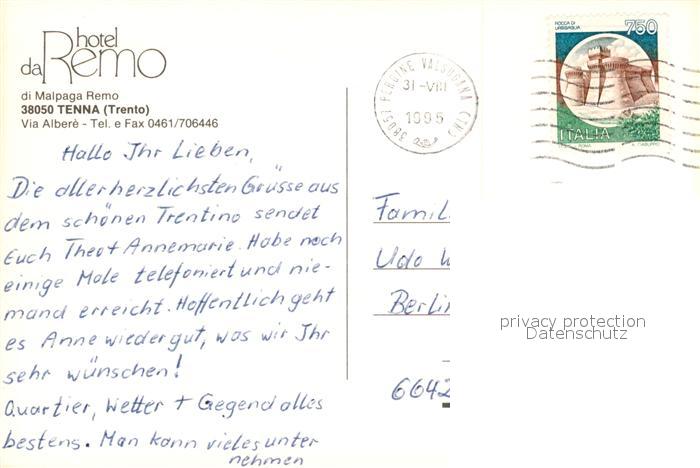 hotel
da Remo
di Malpaga Remo
38050 TENNA (Trento)
Via Alberè - Tel. e Fax 0461/706446
Hallo Ihr Lieben,
Die allerherzlichsten Grüsse aus
dem schönen Trentino sendet
Euch Theo + Annemarie. Habe noch
einige Male telefoniert und nie-
mand erreicht. Hoffentlich geht
es Anne wieder gut, was wir Ihr
sehr wünschen!
Quartier, Wetter + Gegend alles
bestens. Man kann vieles unter
nehmen
38057 PERGINE VALSUGANA (TN)
31-VIII
1995
ROCCA DI
URBISAGLIA
750
ITALIA
ROMA
Famil
Udo W
Berlin
6642
privacy protection
Datenschutz